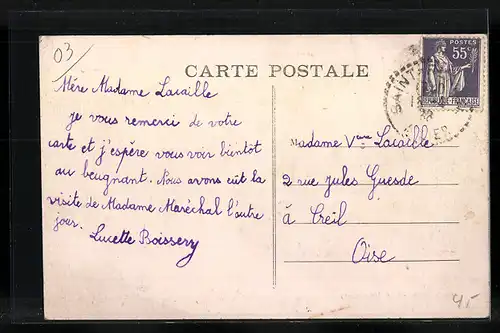 03
CARTE POSTALE
POSTES
55c
REPUBLIQUE FRANÇAISE
SAINT
Mère Madame Lacaille
je vous remerci de votre
carte et j'espère vous voir bientôt
au beugnant. Nous avons eût la
visite de Madame Maréchal l'autre
jour.
Lucette Boissery
Madame Vve Lacaille
2 rue Jules Guesde
à Creil
Oise
4,-